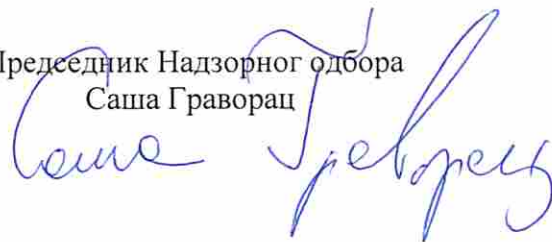 Предсједник Надзорног одбора
Саша Граворац
Саша Граворац